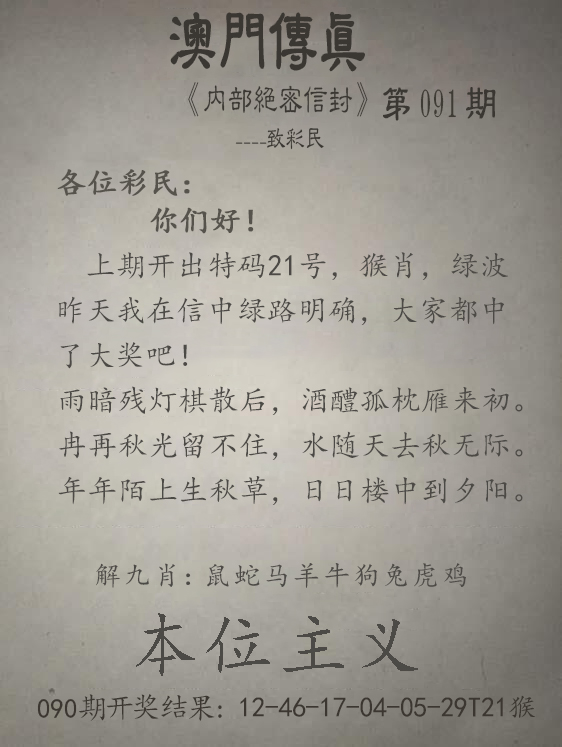 澳門傳真
《内部絕密信封》第091期
----致彩民
各位彩民:
你们好!
上期开出特码21号，猴肖，绿波
昨天我在信中绿路明确，大家都中
了大奖吧!
雨暗残灯棋散后，酒醒孤枕雁来初。
冉再秋光留不住，水随天去秋无际。
年年陌上生秋草，日日楼中到夕阳。
解九肖:鼠蛇马羊牛狗兔虎鸡
本位主义
090期开奖结果：12-46-17-04-05-29T21猴